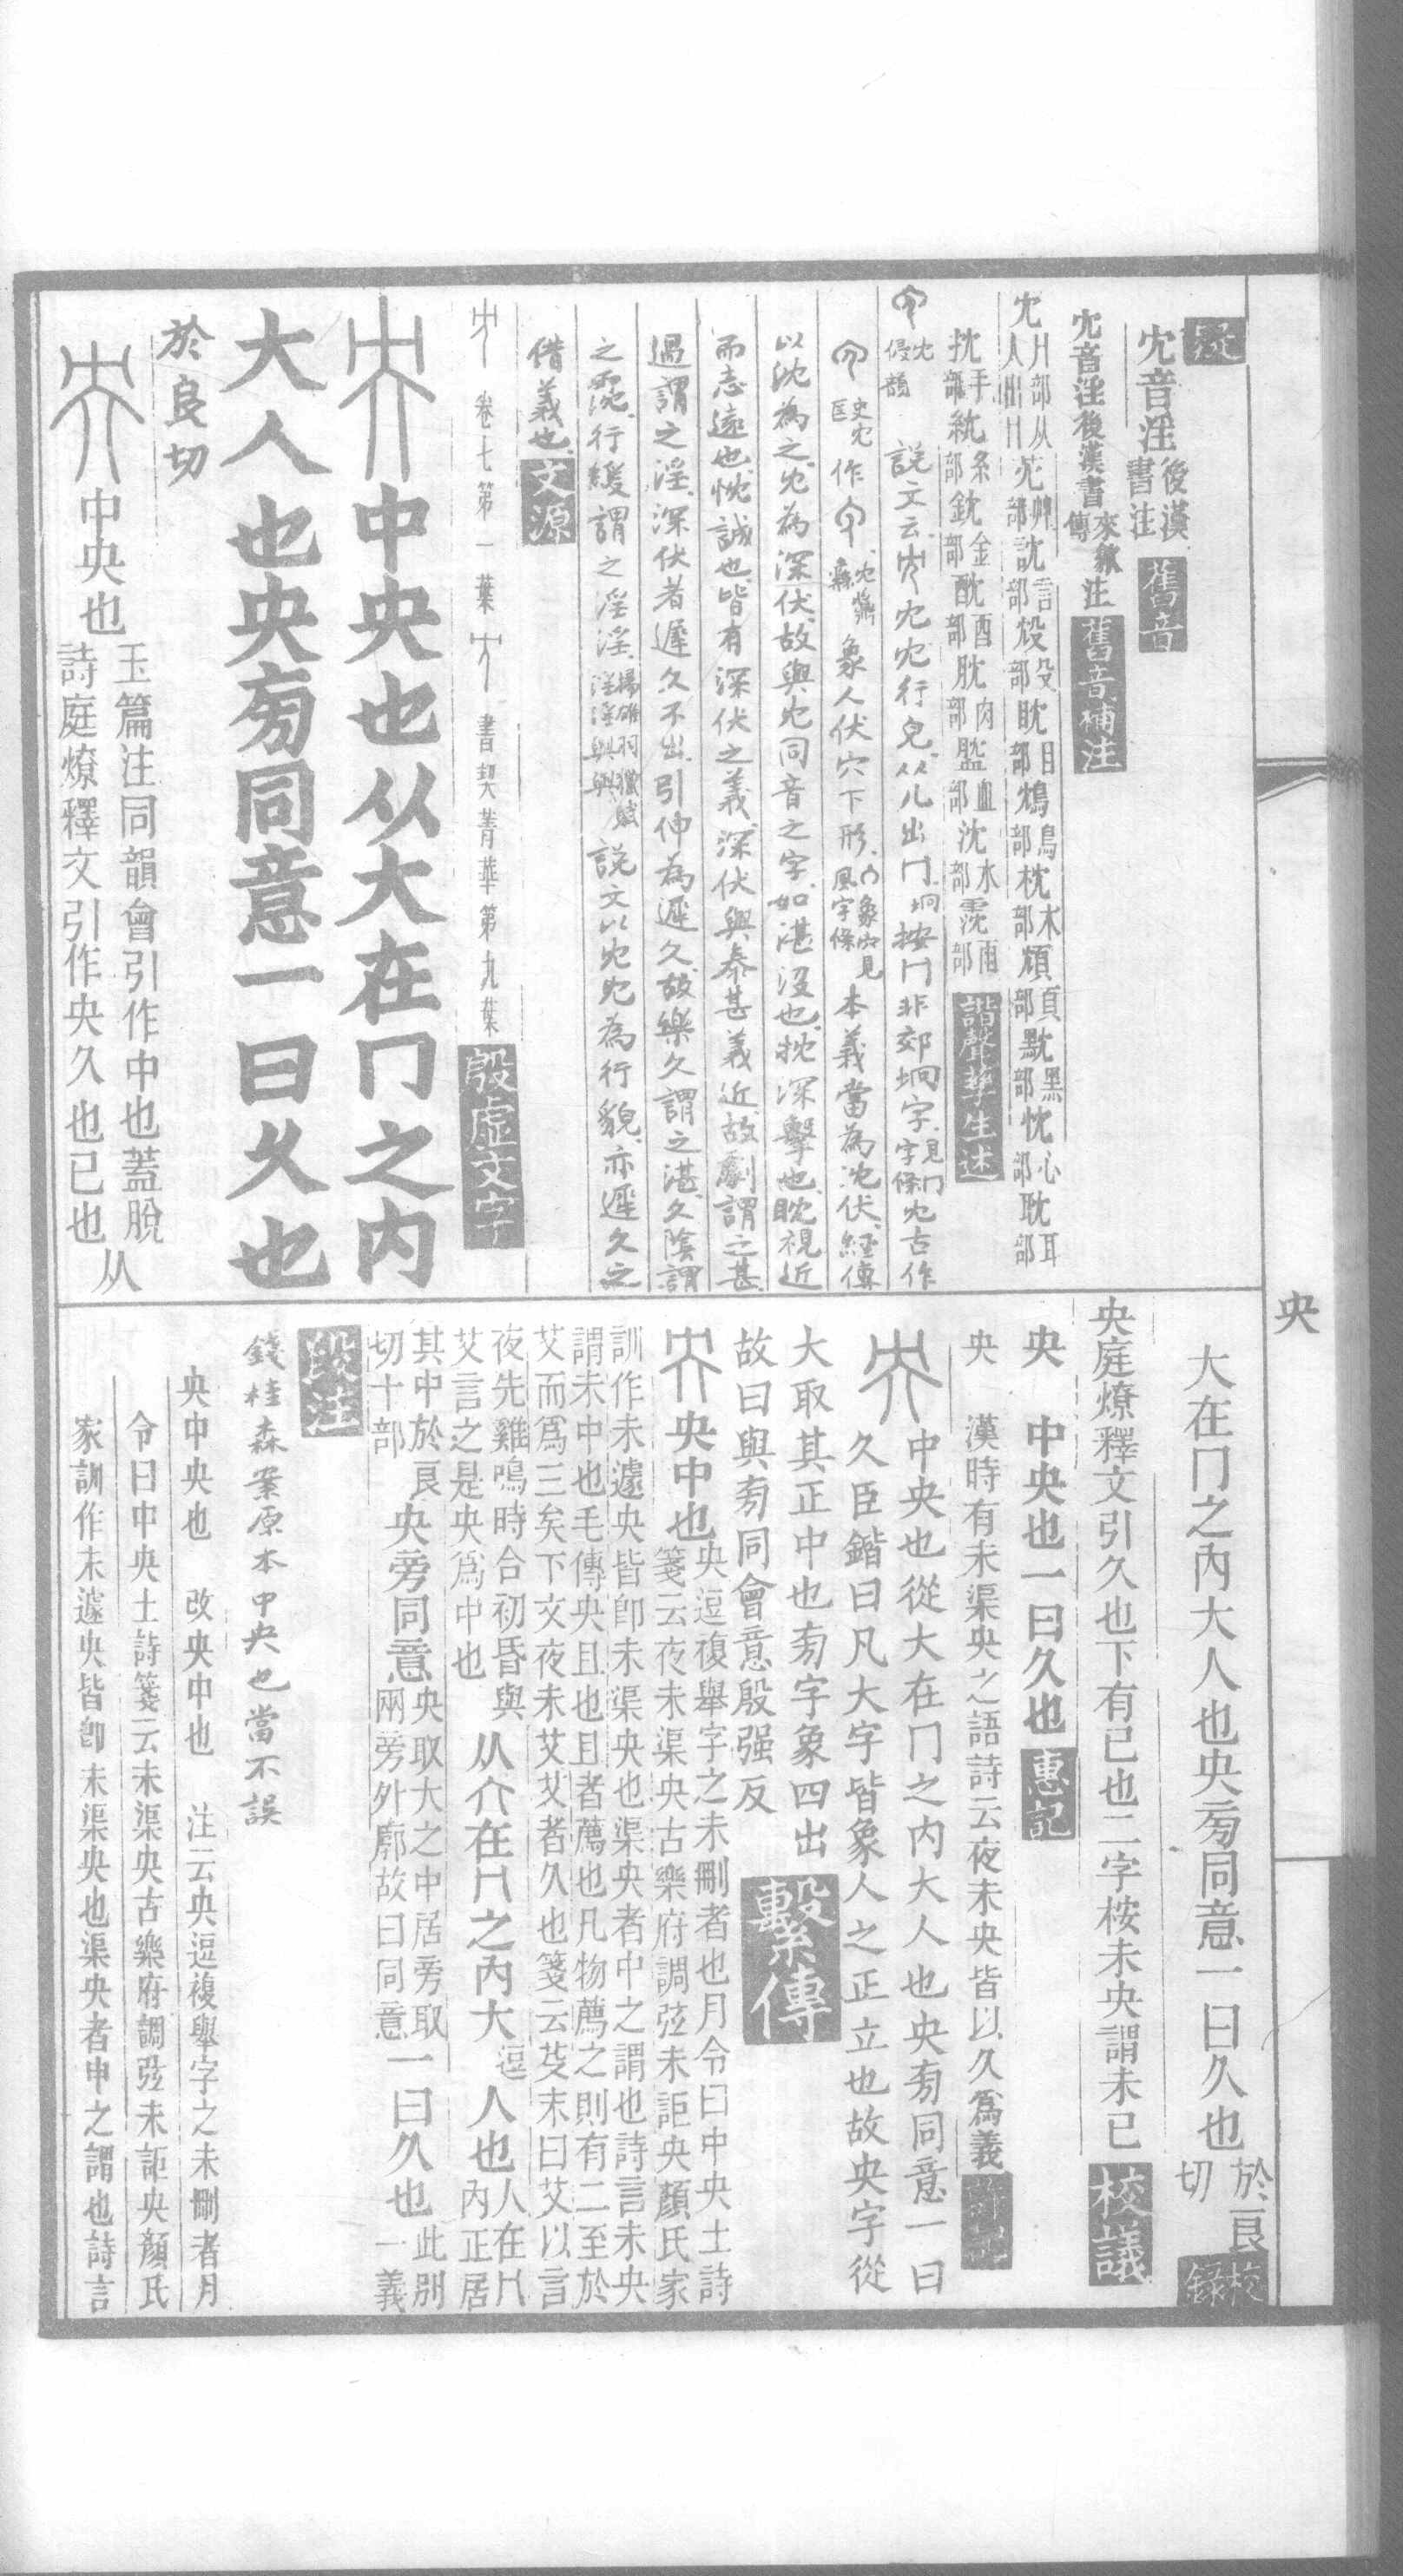 疑
冘音淫後漢書注舊音
冘音淫後漢書來歙傳注舊音補注
冘人出冂冂部从䒚艸部訦言部䀡殳部眈目部鴆鳥部枕木部䫈頁部黕黑部忱心部耽耳部
抌手部紞糸部鈂金部酖酉部肬肉部䀋血部沈水部霃雨部諧聲孳生述
冘侵韻 說文云冘冘行皃从儿出冂按冂非郊坰字見冂字條冘古作
作 象人伏穴下形 見風字條本義當爲沈伏經傳
以沈為之冘為深伏故與冘同音之字如湛沒也抌深擊也眈視近
而志遠也忱誠也皆有深伏之義深伏與泰甚義近故劇謂之甚
過謂之淫深伏者遲久不出引伸為遲久故樂久謂之湛久陰謂
之霃行緩謂之淫淫揚雄羽獵賦淫淫與與說文以冘冘為行貌亦遲久之
借義也文源
卷七第一葉 書契菁華第九葉殷虛文字
中央也从大在冂之內
大人也央㫄同意一曰久也
於良切
中央也玉篇注同韻會引作中也蓋脫詩庭燎釋文引作央久也已也从
央
大在冂之內大人也央㫄同意一曰久也於良切校錄
央庭燎釋文引久也下有已也二字桉未央謂未已校議
央 中央也一曰久也惠記
央 漢時有未渠央之語詩云夜未央皆以久爲義
中央也從大在冂之內大人也央㫄同意一曰
久臣鍇曰凡大字皆象人之正立也故央字從
大取其正中也㫄字象四出
故曰與㫄同會意殷强反繫傳
央中也央逗複舉字之未刪者也月令曰中央土詩箋云夜未渠央古樂府調弦未詎央顏氏家
訓作未遽央皆卽未渠央也渠央者中之謂也詩言未央謂未中也毛傳央且也且者薦也凡物薦之則有二至於
艾而爲三矣下文夜未艾艾者久也箋云芟末曰艾以言夜先雞鳴時合初昏與艾言之是央爲中也
从大在冂之內大逗人也人在冂內正居
其中於良切十部央旁同意央取大之中居旁取兩旁外廓故曰同意一曰久也此別一義
段注
錢桂森案原本中央也當不誤
央中央也 改央中也 注云央逗複舉字之未刪者月
令曰中央土詩箋云未渠央古樂府調弦未詎央顏氏
家訓作未遽央皆卽未渠央也渠央者中之謂也詩言